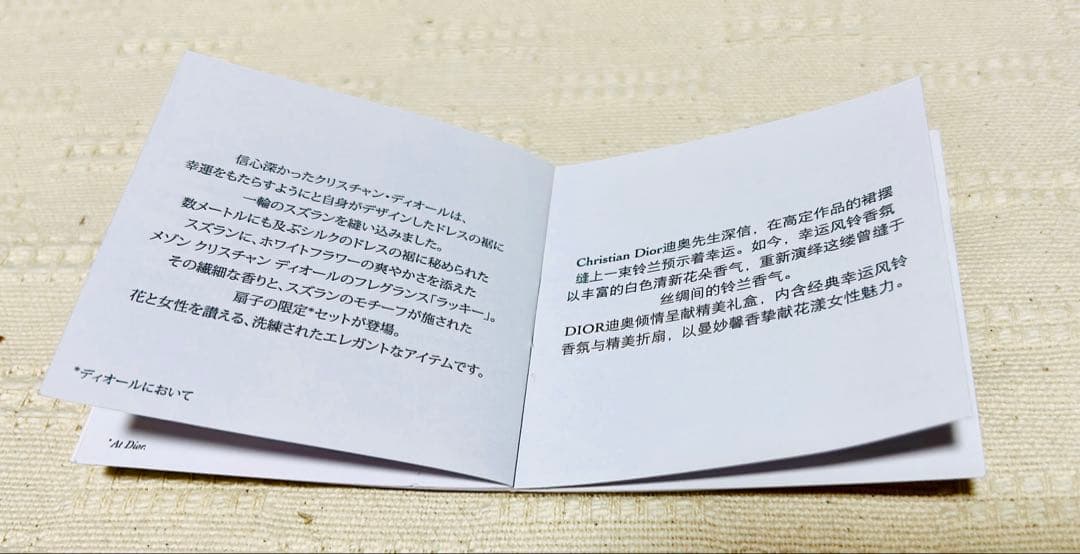 信心深かったクリスチャン・ディオールは、
幸運をもたらすようにと自身がデザインしたドレスの裾に
一輪のスズランを縫い込みました。
数メートルにも及ぶシルクのドレスの裾に秘められた
スズランに、ホワイトフラワーの爽やかさを添えた
メゾン クリスチャン ディオールのフレグランス「ラッキー」。
その繊細な香りと、スズランのモチーフが施された
扇子の限定*セットが登場。
花と女性を讃える、洗練されたエレガントなアイテムです。
*ディオールにおいて
*At Dior.
Christian Dior迪奥先生深信，在高定作品的裙摆
缝上一束铃兰预示着幸运。如今，幸运风铃香氛
以丰富的白色清新花朵香气，重新演绎这缕曾缝于
丝绸间的铃兰香气。
DIOR迪奥倾情呈献精美礼盒，内含经典幸运风铃
香氛与精美折扇，以曼妙馨香挚献花漾女性魅力。